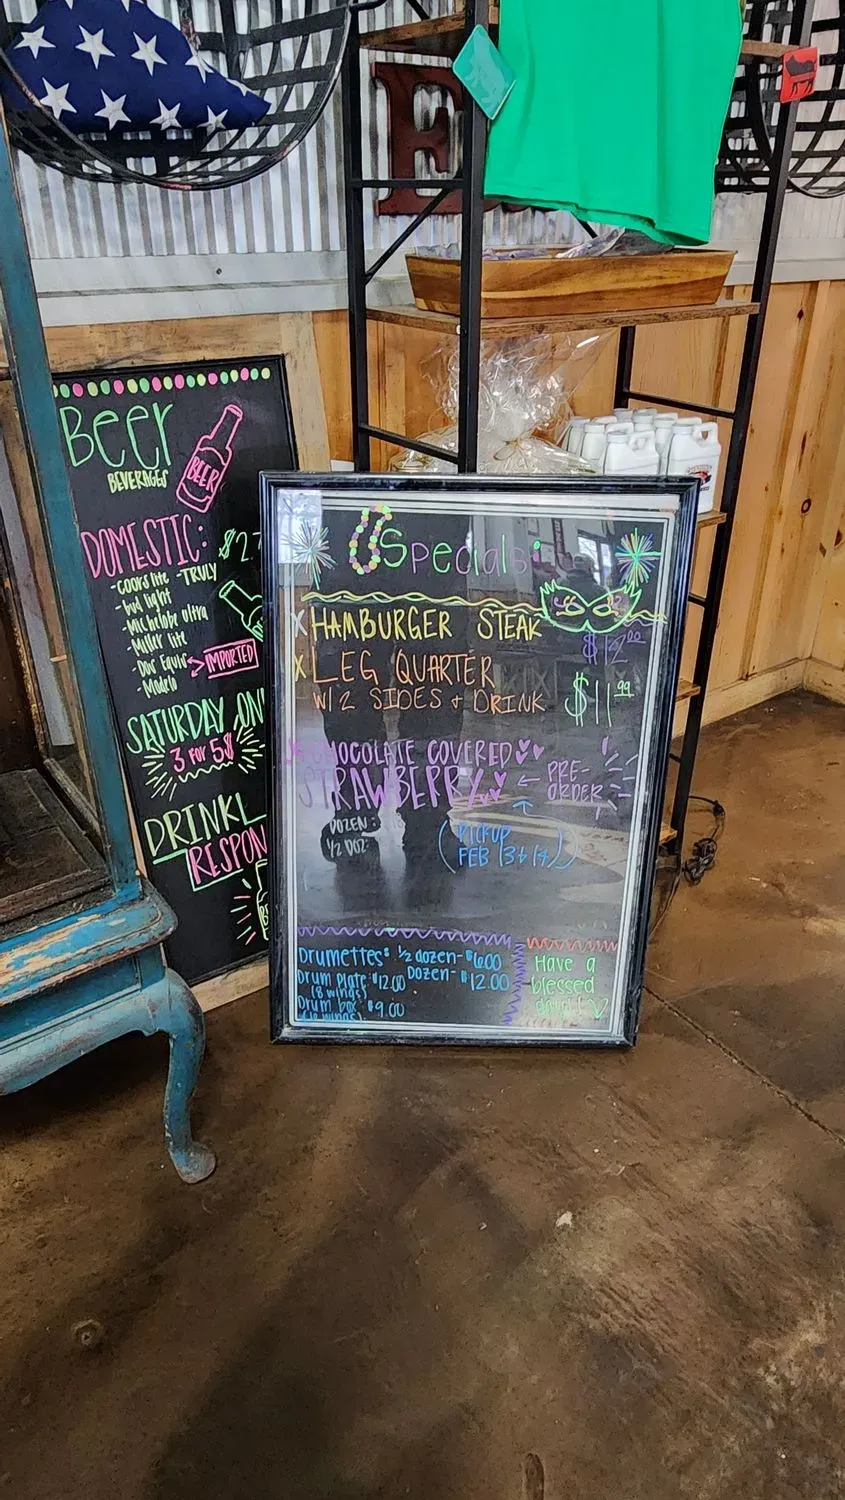 E
Beer
BEVERAGES
BEER
DOMESTIC:
-COORS lite -TRULY
-bud light
-Michelobe ultra
-Miller lite
-Dos Equis
IMPORTED
-Modelo
SATURDAY
3 FOR 5$
Specials!
X HAMBURGER STEAK
$12.00
X LEG QUARTER
W/ 2 SIDES + DRINK
$11.99
CHOCOLATE COVERED
STRAWBERRY
← PRE-
ORDER
DOZEN:
1/2 DOZ:
(PICKUP
FEB 13 + 14)
Drumettes: 1/2 dozen- $6.00
Dozen- $12.00
Drum Plate $12.00
(8 wings)
Drum box $9.00
Have a
blessed
day!